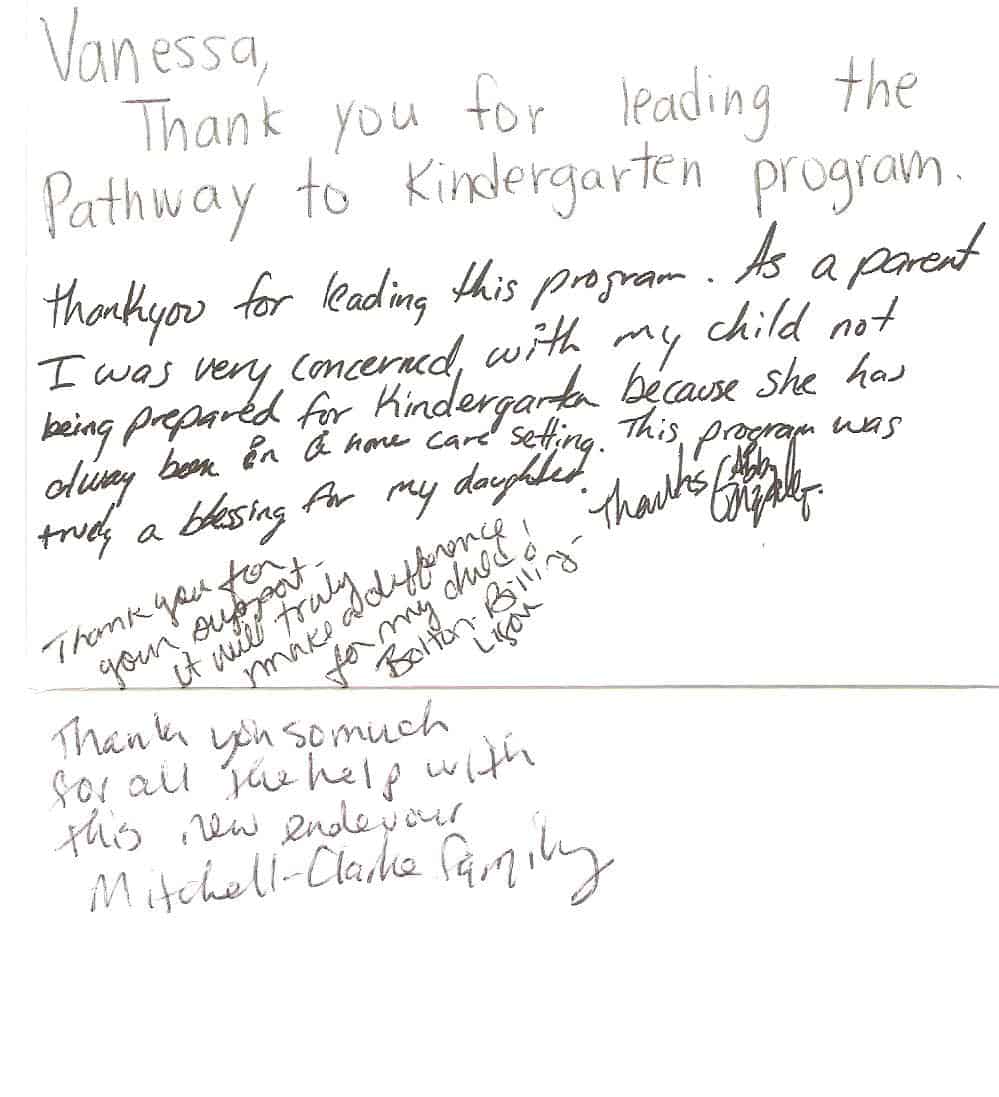 Vanessa,
Thank you for leading the
Pathway to Kindergarten program.
thankyou for leading this program. As a parent
I was very concerned, with my child not
being prepared for Kindergarten because she has
alway been in a home care setting. This program was
truly a blessing for my daughter. Thanks Abby Gonzalez.
Thank you for
your support.
it will truly
make a difference
for my child!
Bolton-Billing-
Thank you so much
for all the help with
this new endevour
Mitchell-Clarke family